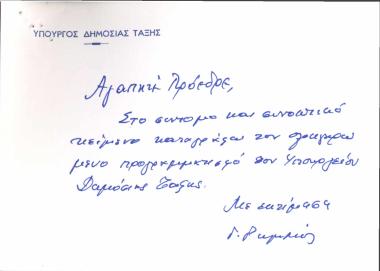 ΥΠΟΥΡΓΟΣ ΔΗΜΟΣΙΑΣ ΤΑΞΗΣ
Αγαπητέ Πρόεδρε,
Στο σύντομο και συνοπτικό
κείμενο καταγράφω τον ολοκληρω
μένο προγραμματισμό του Υπουργείου
Δημόσιας Τάξης.
Με εκτίμηση